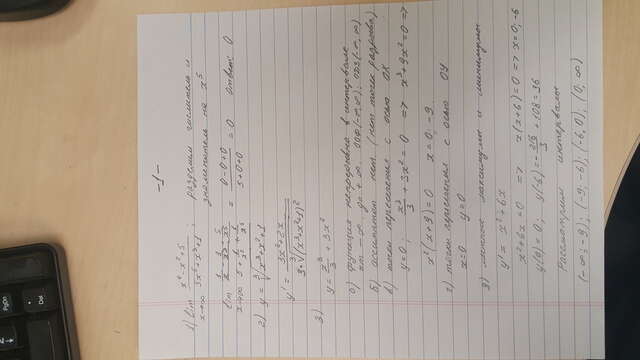 -1-
1) lim x→∞ (x⁴-x²+5)/(5x⁵+x³+1) ; разделим числитель и
знаменатель на x⁵
lim x→∞ (1/x - 1/x³ + 5/x⁵)/(5 + 1/x² + 1/x⁵) = (0-0+0)/(5+0+0) = 0 ответ: 0
2) y = ∛(x³+x²+1)
y' = (3x²+2x)/(3·∛(x³+x²+1)²)
3)
y = x³/3 + 3x²
а) функция непрерывна в интервале
от -∞ до +∞.
б) ассимптот нет (нет точек разрыва)
в) точки пересечения с осью OX
y=0; x³/3 + 3x² = 0 => x³+9x²=0 =>
x²(x+9)=0 x=0; -9
г) точки пересечения с осью OY
x=0 y=0
д) максимумы и минимумы
y' = x²+6x
x²+6x=0 => x(x+6)=0 => x=0; -6
y(0)=0; y(-6)=-216/3+108=36
Рассмотрим интервалы
(-∞;-9); (-9,-6); (-6,0), (0,∞)